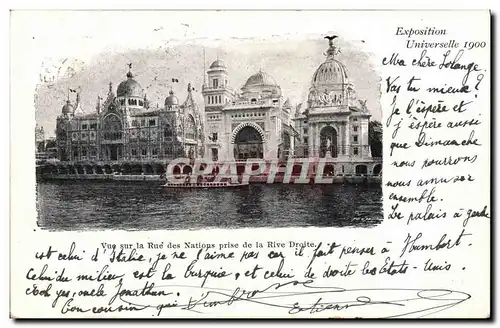 Exposition
Universelle 1900
Ma chère Solange.
Vas tu mieux ?
Je l'espère et
j'espère aussi
que Dimanche
nous pourrons
nous amuser
ensemble.
Le palais à gauche
CARAPHIL
Vue sur la Rue des Nations prise de la Rive Droite.
est celui d'Italie, je ne l'aime pas car il fait penser à Humbert.
Celui du milieu, est la Turquie, et celui de droite les Etats-Unis.
yes, oncle Jonathan.
bon cousin, qui t'embrasse